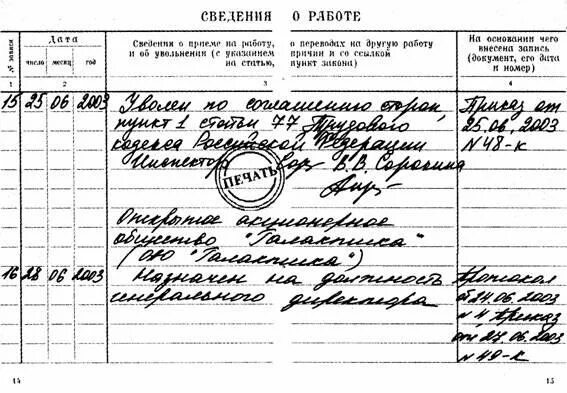 СВЕДЕНИЯ О РАБОТЕ
№ записи
Дата
Сведения о приеме на работу, о переводах на другую работу
и об увольнении (с указанием причин и со ссылкой
на статью, пункт закона)
На основании чего
внесена запись
(документ, его дата
и номер)
число месяц год
1 2 3 4
15 25 06 2003 Уволен по соглашению сторон, Приказ от
пункт 1 статьи 77 Трудового 25.06.2003
кодекса Российской Федерации N 48-к
Инспектор В.В. Сорокина
ПЕЧАТЬ
Открытое акционерное
общество "Галактика"
(ОАО "Галактика")
16 28 06 2003 Назначен на должность Протокол
генерального директора от 24.06.2003
N 4, Приказ
от 27.06.2003
N 49-к
14 15